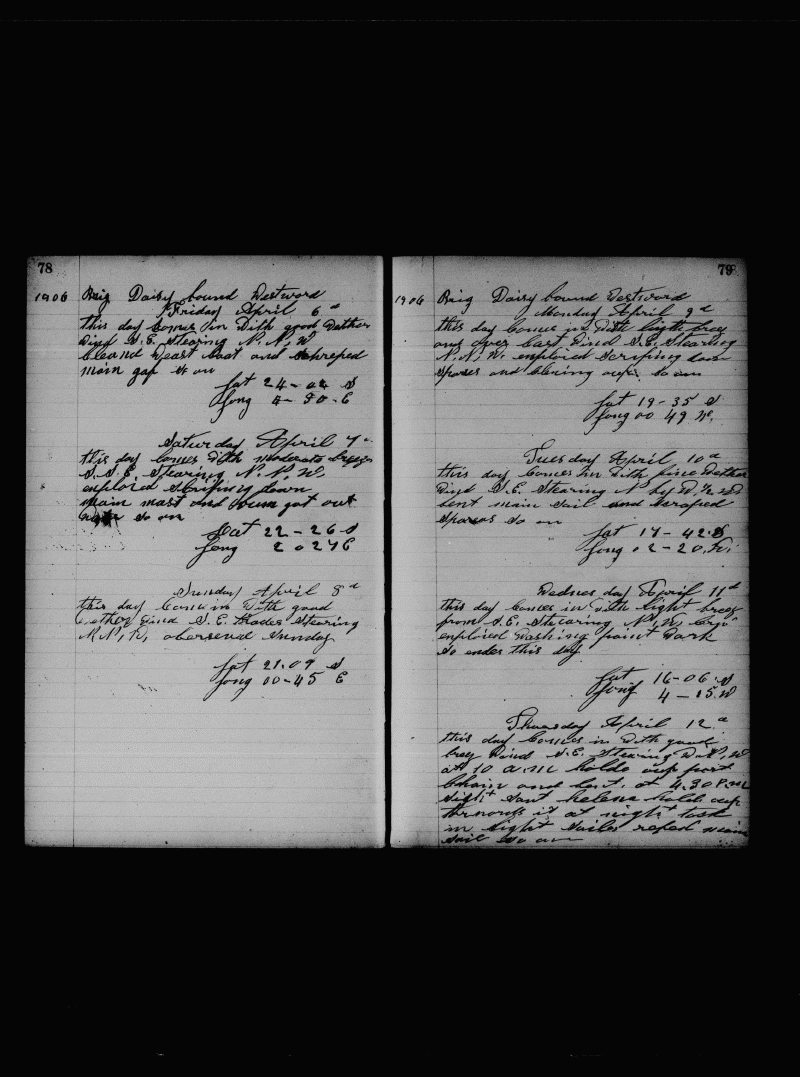 78
1906 Brig Daisy bound Westword
Friday April 6 d
this day Comes in With good Wether
Wind S.E. Stearing N.N.W
Cleand Weast boat and schreped
main gap So on
Lat 24-04 S
Long 4-50-E
Saturday April 7
this day Comes With moderate breez
S.S.E. Stearing N.N.W.
emploied scrifing down
main mast and boum got out
So on
Lat 22-26-S
Long 2 027 E
Sunday April 8 d
this day Coms in With good
Wether Wind S.E. trades Stearing
N.N.W. obersened Sunday
Lat 21.09 S
Long 00-45 E
79
1906 Brig Daisy bound Westword
Monday April 9 d
this day Comes in With ligth breez
and over Cast Wind S.E. Stearing
N.N.W. emploied scrifing down
spares and So on
Lat 19-35 S
Long 00 49 W.
Tuesday April 10 d
this day Comes in With fine Wether
Wind S.E. Stearing N by W ½ W
bent main sail and scraped
spares So on
Lat 17-42 S
Long 02-20.W.
Wednes day April 11 d
this day Comes in with light breez
from S.E. Stearing N.W.
emploied Washing paint Work
So endes this day
Lat 16-06 S
Long 4-15 W
Thursday April 12 d
this day Comes in With good
breez Wind S.E. Stearing W.N.W
at 10 a.m holds up port
Chain and bent. at 4.30 P.m
sight Sant helena holds up
thenords it at night took
in light sailes refed main
sail So on